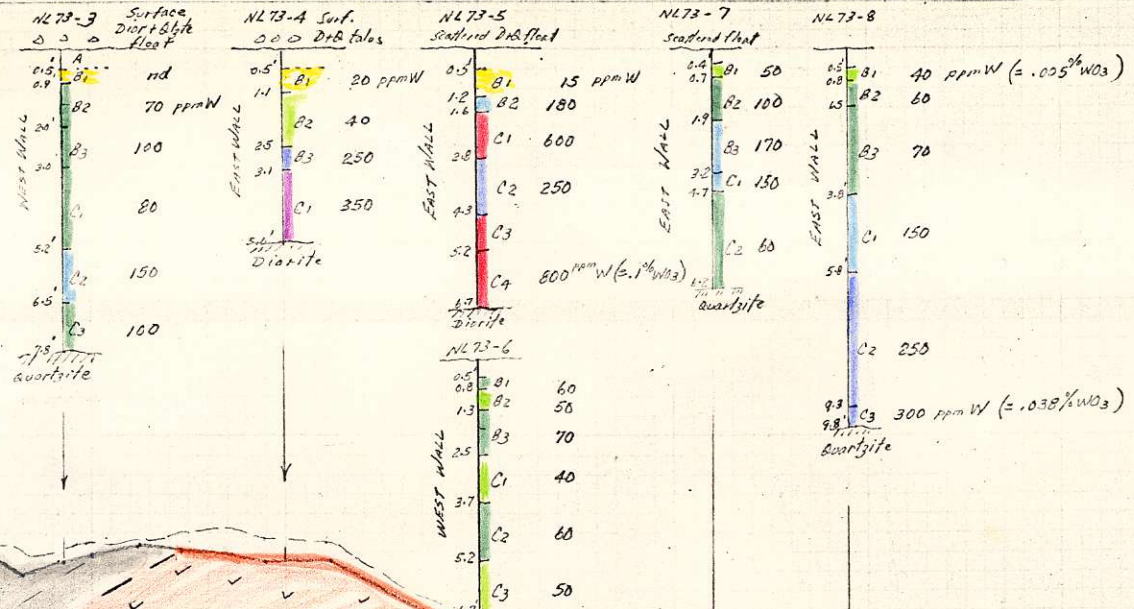 NL73-3
Surface
Dior + Qtzte
float
WEST WALL
A
0.5'
B1 nd
0.9
B2 70 ppmW
2.0'
B3 100
3.0
C1 80
5.2'
C2 150
6.5'
C3 100
7.8'
Quartzite
NL73-4 Surf.
D+Q talus
EAST WALL
0.5'
B1 20 ppmW
1.1
B2 40
2.5
B3 250
3.1
C1 350
Diorite
NL73-5
Scattered D+Q float
EAST WALL
0.5'
B1 15 ppmW
1.2
B2 180
1.6
C1 600
2.8
C2 250
4.3
C3
5.2
C4 800 ppm W (=.1% WO3)
6.7
Diorite
NL73-6
WEST WALL
0.5'
B1 60
0.8
B2 50
1.3
B3 70
2.5
C1 40
3.7
C2 60
5.2
C3 50
NL73-7
Scattered float
EAST WALL
0.4
B1 50
0.7
B2 100
1.9
B3 170
3.2
C1 150
4.7
C2 60
Quartzite
NL73-8
EAST WALL
0.5'
B1 40 ppmW (= .005% WO3)
0.8
B2 60
1.5
B3 70
3.8'
C1 150
5.8'
C2 250
9.3
C3 300 ppm W (= .038% WO3)
9.8'
Quartzite